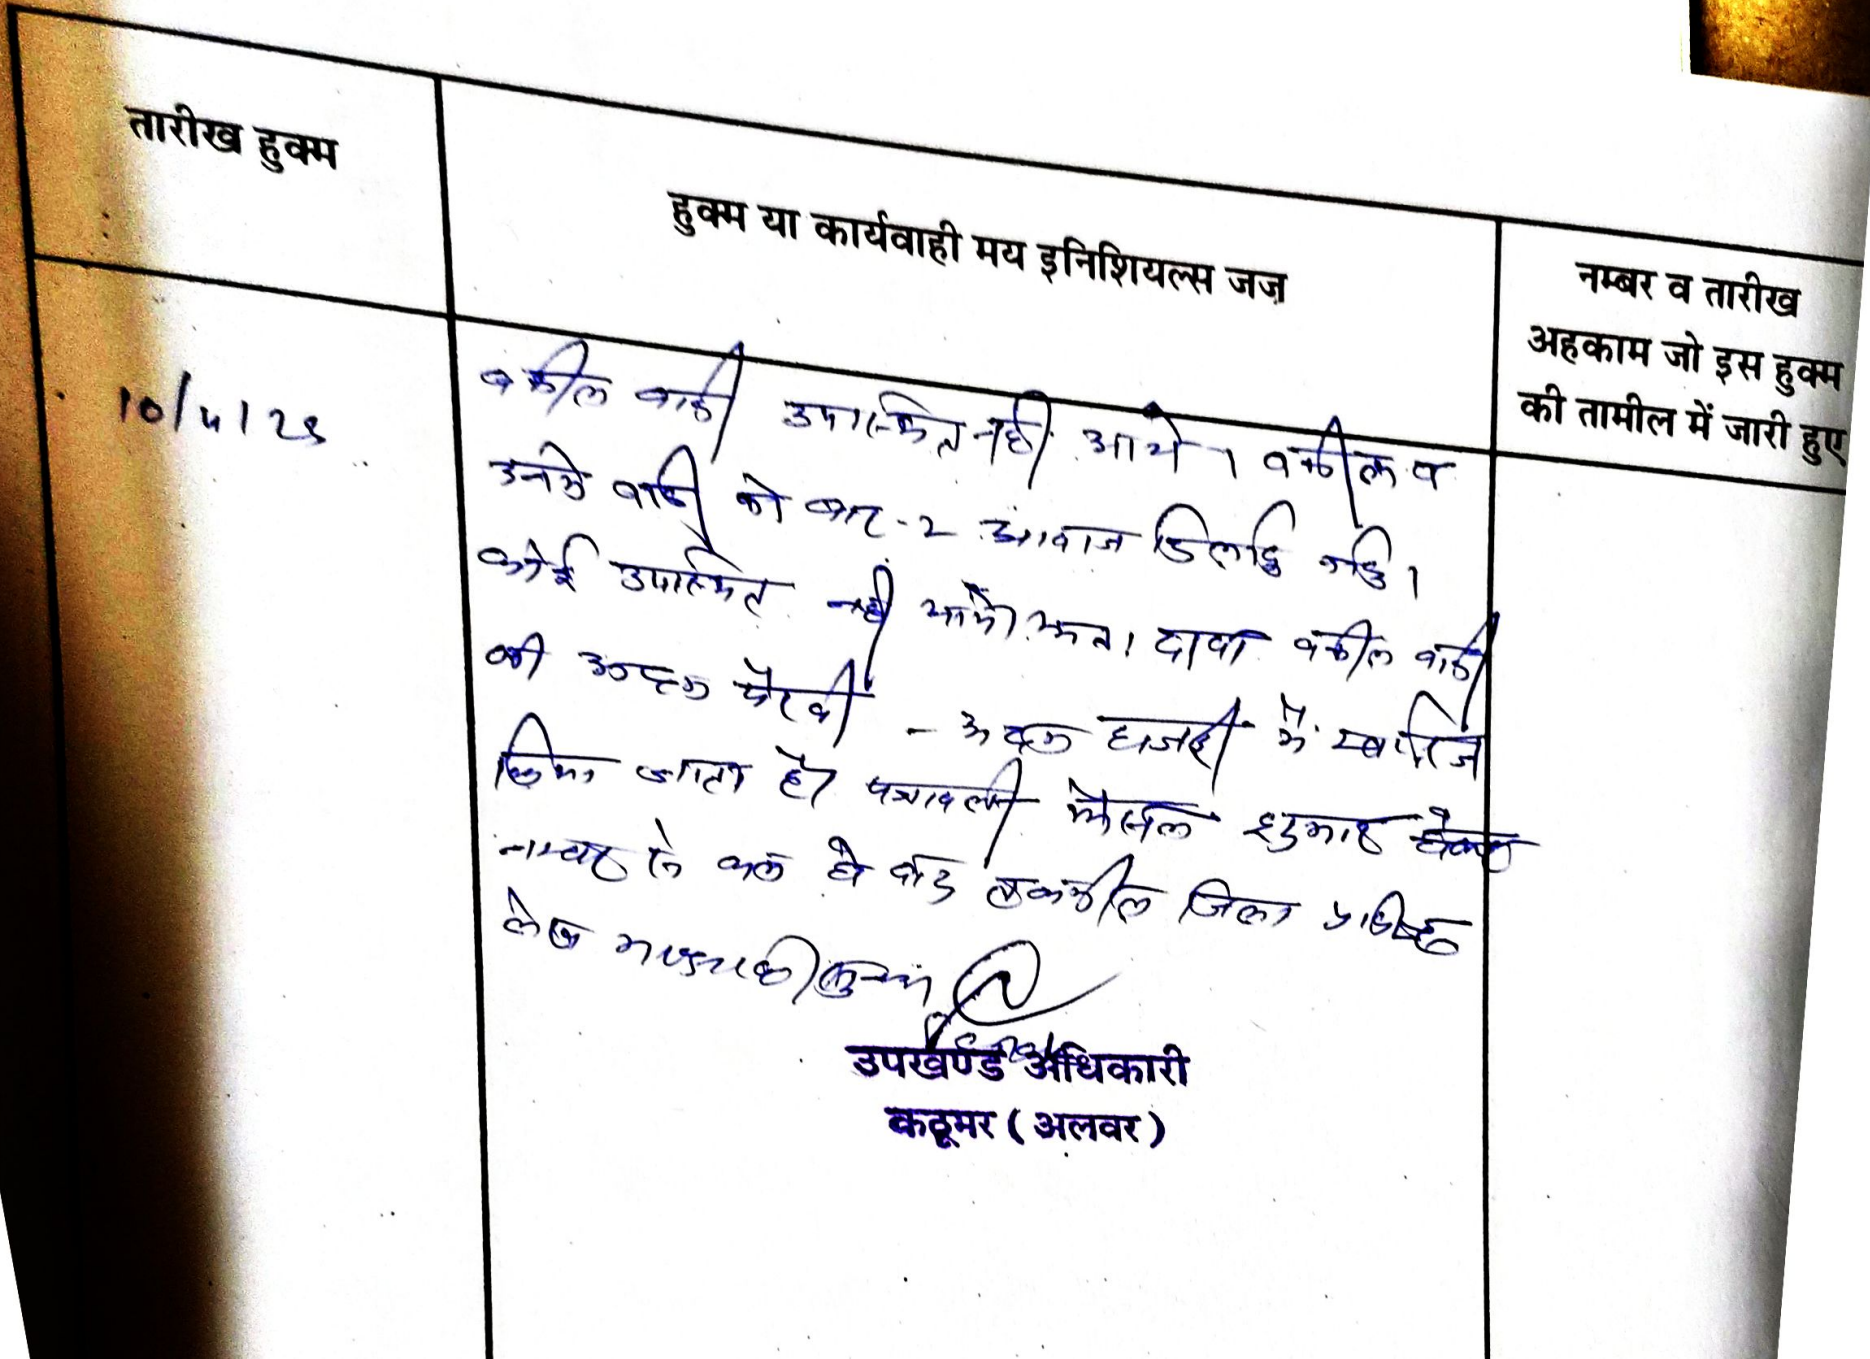 तारीख हुक्म
हुक्म या कार्यवाही मय इनिशियल्स जज़
नम्बर व तारीख
अहकाम जो इस हुक्म
की तामील में जारी हुए
वकील वादी उपस्थित नहीं आये । वकील व
उनके वादी को बार-२ आवाज दिलाई गई ।
कोई उपस्थित नहीं आये। अतः दावा वकील वादी
की अदम पैरवी - अदम हाजरी में खारिज
किया जाता है। पत्रावली फैसल शुमार होकर
नम्बर से कम हो बाद तकमील जिला
लेख
उपखण्ड अधिकारी
कठूमर ( अलवर )